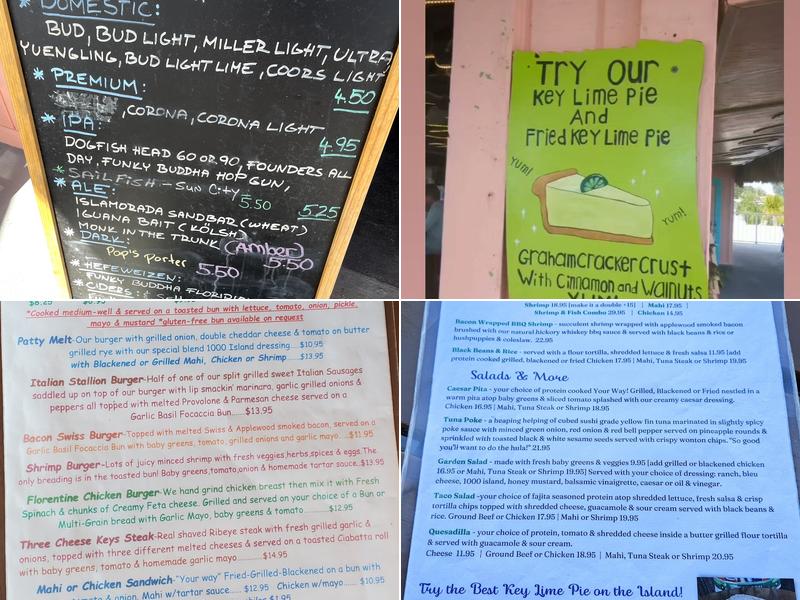 * DOMESTIC:
BUD, BUD LIGHT, MILLER LIGHT, ULTRA,
YUENGLING, BUD LIGHT LIME, COORS LIGHT
4.50
* PREMIUM:
, CORONA, CORONA LIGHT
4.95
* IPA:
DOGFISH HEAD 60 OR 90, FOUNDERS ALL
DAY, FUNKY BUDDHA HOP GUN,
* SAILFISH - SUN CITY
5.50
5.25
* ALE:
ISLAMORADA SANDBAR (WHEAT)
IGUANA BAIT (KÖLSH)
* MONK IN THE TRUNK (AMBER)
5.50
* DARK:
Pop's Porter
5.50
* HEFEWEIZEN:
FUNKY BUDDHA FLORIDIA
* CIDERS:
TRY OUR
KEY LIME PIE
AND
FRIED KEY LIME PIE
YUM!
YUM!
GRAHAM CRACKER CRUST
WITH CINNAMON AND WALNUTS
*Cooked medium-well & served on a toasted bun with lettuce, tomato, onion, pickle,
mayo & mustard *gluten-free bun available on request
Patty Melt-Our burger with grilled onion, double cheddar cheese & tomato on butter
grilled rye with our special blend 1000 Island dressing... $10.95
with Blackened or Grilled Mahi, Chicken or Shrimp.....$13.95
Italian Stallion Burger-Half of one our split grilled sweet Italian Sausages
saddled up on top of our burger with lip smackin' marinara, garlic grilled onions &
peppers all topped with melted Provolone & Parmesan cheese served on a
Garlic Basil Focaccia Bun.....$13.95
Bacon Swiss Burger-Topped with melted Swiss & Applewood smoked bacon, served on a
Garlic Basil Focaccia Bun with baby greens, tomato, grilled onions and garlic mayo....$11.95
Shrimp Burger-Lots of juicy minced shrimp with fresh veggies,herbs,spices & eggs.The
only breading is in the toasted bun! Baby greens,tomato,onion & homemade tartar sauce..$13.95
Florentine Chicken Burger-We hand grind chicken breast then mix it with Fresh
Spinach & chunks of Creamy Feta cheese. Grilled and served on your choice of a Bun or
Multi-Grain bread with Garlic Mayo, baby greens & tomato.........$12.95
Three Cheese Keys Steak-Real shaved Ribeye steak with fresh grilled garlic &
onions, topped with three different melted cheeses & served on a toasted Ciabatta roll
with baby greens, tomato & homemade garlic mayo.........$14.95
Mahi or Chicken Sandwich-"Your way" Fried-Grilled-Blackened on a bun with
tomato & onion. Mahi w/tartar sauce..... $12.95 Chicken w/mayo..... $10.95
Shrimp 18.95 [make it a double +15] | Mahi 17.95 |
Shrimp & Fish Combo 29.95 | Chicken 14.95
Bacon Wrapped BBQ Shrimp - succulent shrimp wrapped with applewood smoked bacon
brushed with our natural hickory whiskey bbq sauce & served with black beans & rice or
hushpuppies & coleslaw. 22.95
Black Beans & Rice - served with a flour tortilla, shredded lettuce & fresh salsa 11.95 [add
protein cooked grilled, blackened or fried Chicken 17.95 | Mahi, Tuna Steak or Shrimp 19.95]
Salads & More
Caesar Pita - your choice of protein cooked Your Way! Grilled, Blackened or Fried nestled in a
warm pita atop baby greens & sliced tomato splashed with our creamy caesar dressing.
Chicken 16.95 | Mahi, Tuna Steak or Shrimp 18.95
Tuna Poke - a heaping helping of cubed sushi grade yellow fin tuna marinated in slightly spicy
poke sauce with minced green onion, red onion & red bell pepper served on pineapple rounds &
sprinkled with toasted black & white sesame seeds served with crispy wonton chips. "So good
you'll want to do the hula!" 21.95
Garden Salad - made with fresh baby greens & veggies 9.95 [add grilled or blackened chicken
16.95 or Mahi, Tuna Steak or Shrimp 19.95] Served with your choice of dressing: ranch, bleu
cheese, 1000 island, honey mustard, balsamic vinaigrette, caesar or oil & vinegar.
Taco Salad -your choice of fajita seasoned protein atop shredded lettuce, fresh salsa & crisp
tortilla chips topped with shredded cheese, guacamole & sour cream served with black beans &
rice. Ground Beef or Chicken 17.95 | Mahi or Shrimp 19.95
Quesadilla - your choice of protein, tomato & shredded cheese inside a butter grilled flour tortilla
& served with guacamole & sour cream.
Cheese 11.95 | Ground Beef or Chicken 18.95 | Mahi, Tuna Steak or Shrimp 20.95
Try the Best Key Lime Pie on the Island!